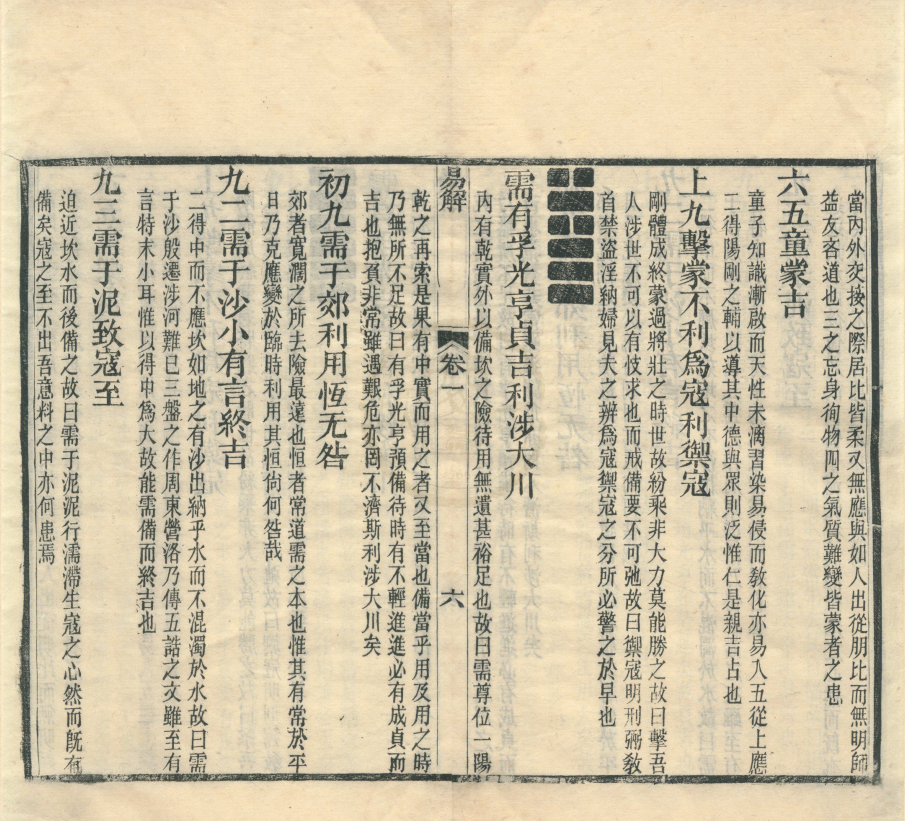 當內外交接之際居比皆柔又無應與如人出從朋比而無明師
益友吝道也三之忘身徇物四之氣質難變皆蒙者之患
六五童蒙吉
童子知識漸啟而天性未漓習染易侵而敎化亦易入五從上應
二得陽剛之輔以導其中德與眾則泛惟仁是親吉占也
上九擊蒙不利爲寇利禦寇
剛體成終蒙過將壯之時世故紛乘非大力莫能勝之故曰擊吾
人涉世不可以有忮求也而戒備要不可弛故曰禦寇明刑弼敎
首禁盜淫納婦見夫之辨爲寇禦寇之分所必警之於早也
需有孚光亨貞吉利涉大川
內有乾實外以備坎之險待用無遺甚裕足也故曰需尊位一陽
易解
卷一
六
乾之再索是果有中實而用之者又至當也備當乎用及用之時
乃無所不足故曰有孚光亨預備待時有不輕進進必有成貞而
吉也抱負非常雖遇艱危亦罔不濟斯利涉大川矣
初九需于郊利用恆无咎
郊者寛濶之所去險最遠也恒者常道需之本也惟其有常於平
日乃克應變於臨時利用其恒尙何咎哉
九二需于沙小有言終吉
二得中而不應坎如地之有沙出納乎水而不混濁於水故曰需
于沙殷遷涉河難已三盤之作周東營洛乃傳五誥之文雖至有
言特末小耳惟以得中爲大故能需備而終吉也
九三需于泥致寇至
迫近坎水而後備之故曰需于泥泥行濡滯生寇之心然而旣有
備矣寇之至不出吾意料之中亦何患焉